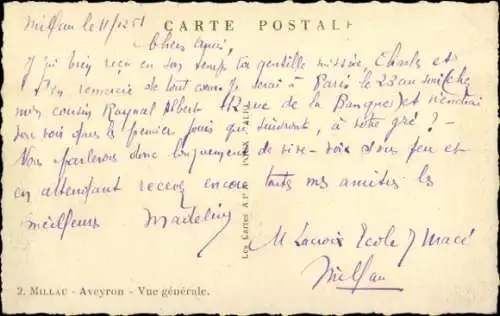 Millau le 11/12 51
CARTE POSTALE
Chers amis,
J'ai bien reçu en son temps ta gentille missive, Charles et
t'en remercie de tout cœur. Je serai à Paris le 22 au soir (chez
mon cousin Raynal Albert 12 rue de la Banque) et viendrai
vous voir dans les premiers jours qui suivront, à votre gré ? -
Nous parlerons donc longuement de vive-voix sous peu et
en attendant recevez encore toutes mes amitiés les
meilleures Madeleine
M Lacroix Ecole J Macé
Millau
Les Cartes A.P.A. POUX - ALBI
2. MILLAU - Aveyron - Vue générale.